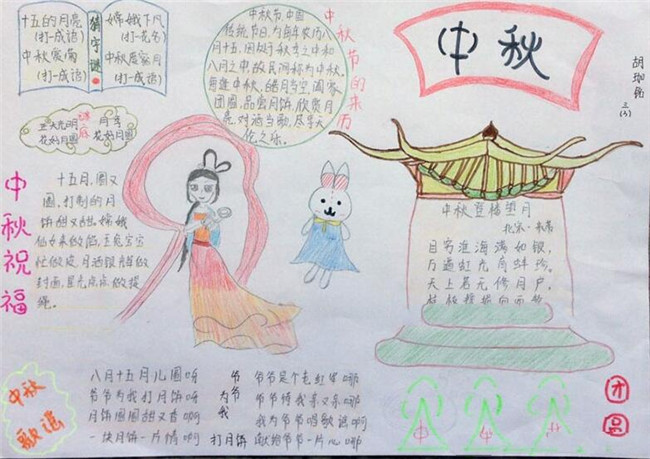 十五的月亮
(打一成语)
中秋赏菊
(打一成语)
猜字谜
嫦娥下凡
(打一花名)
中秋度蜜月
(打一成语)
谜底
正大光明
花好月圆
月季
花好月圆
中秋节,中国
传统节日,为每年农历八
月十五,因处于秋季之中和
八月之中,故民间称为中秋。
每逢中秋,皓月当空,阖家
团圆,品尝月饼,欣赏月
亮,对酒当歌,尽享天
伦之乐。
中秋节的来历
中秋
胡珈铭
三(3)
中秋祝福
十五月,圆又
圆,打制的月
饼甜又甜。嫦娥
仙女来做馅,玉兔宝宝
忙做皮,月洒银辉做
封面,星光点点做提
绳。
中秋登楼望月
目穷淮海满如银,
万道虹光育蚌珍。
天上若无修月户,
桂枝撑损向西轮
中秋
歌谣
八月十五月儿圆呀
爷爷为我打月饼呀
月饼圆圆甜又香啊
一块月饼一片情啊
爷爷为我
打月饼
爷爷是个老红军哪
爷爷待我亲又亲哪
我为爷爷唱歌谣啊
献给爷爷一片心哪
中
团
圆